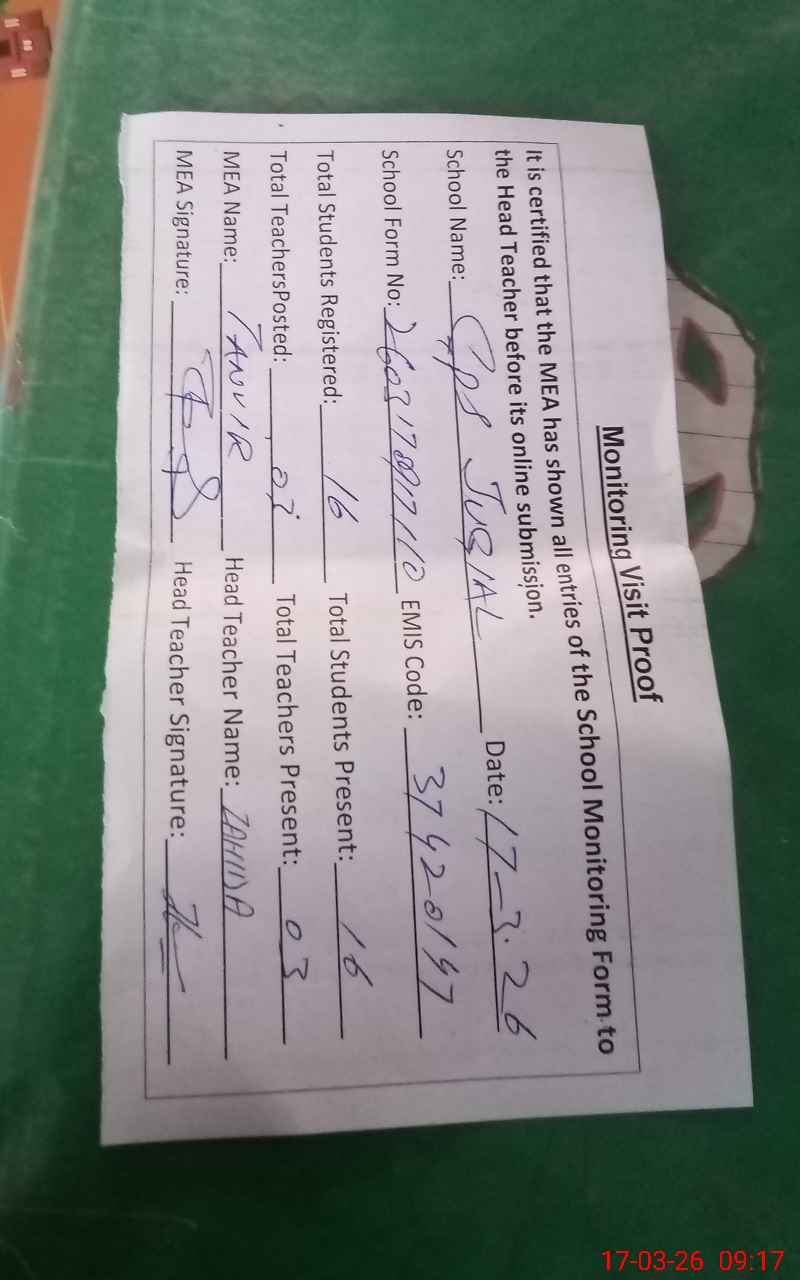 Monitoring Visit Proof
It is certified that the MEA has shown all entries of the School Monitoring Form to
the Head Teacher before its online submission.
School Name: GPS JUGIAL Date: 17-3-26
School Form No: EMIS Code: 37420147
Total Students Registered: 16 Total Students Present: 16
Total TeachersPosted: 03 Total Teachers Present: 03
MEA Name: TANVIR Head Teacher Name: ZAHIDA
MEA Signature: Head Teacher Signature:
17-03-26 09:17